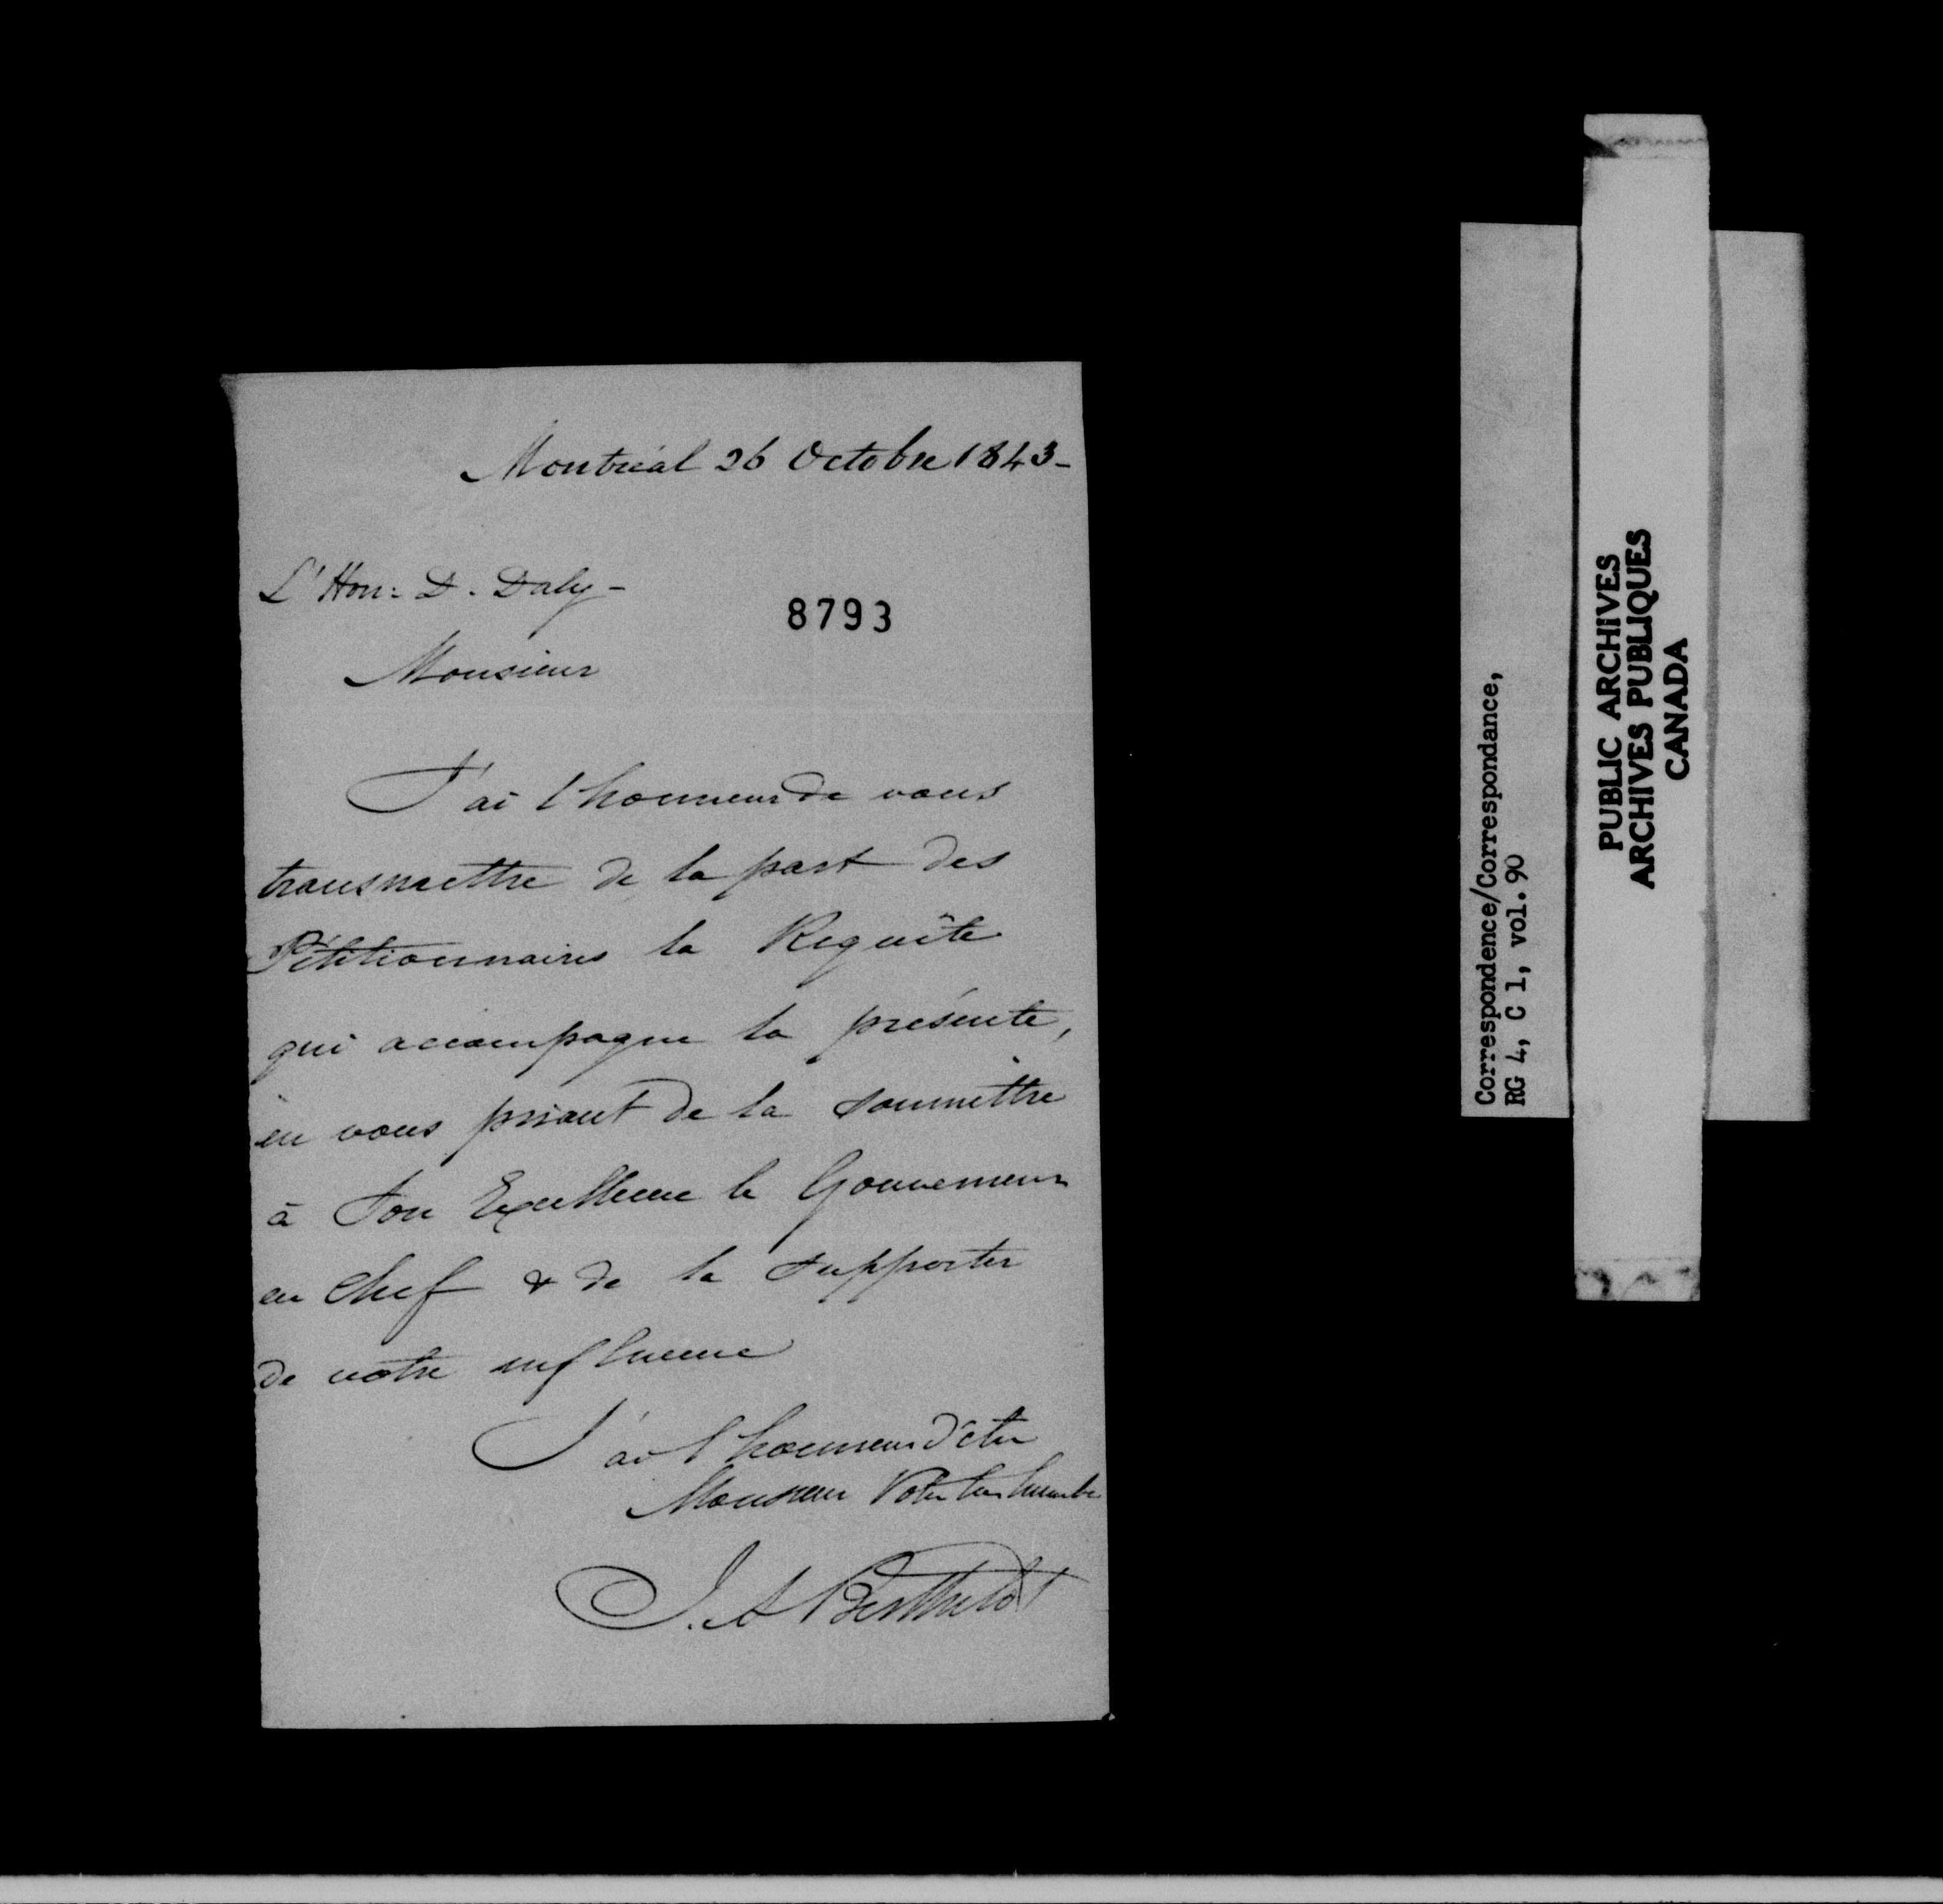 Montréal 26 Octobre 1843-
L'Hon: D. Daly-
8793
Monsieur
J'ai l'honneur de vous
transmettre de la part des
Pétitionnaires la Requête
qui accompagne la présente,
en vous priant de la soumettre
à Son Excellence le Gouverneur
en Chef & de la supporter
de votre influence
J'ai l'honneur d'être
Monsieur Votre très humble
J. A Berthelot
Correspondence/Correspondance,
RG 4, C 1, vol. 90
PUBLIC ARCHIVES
ARCHIVES PUBLIQUES
CANADA